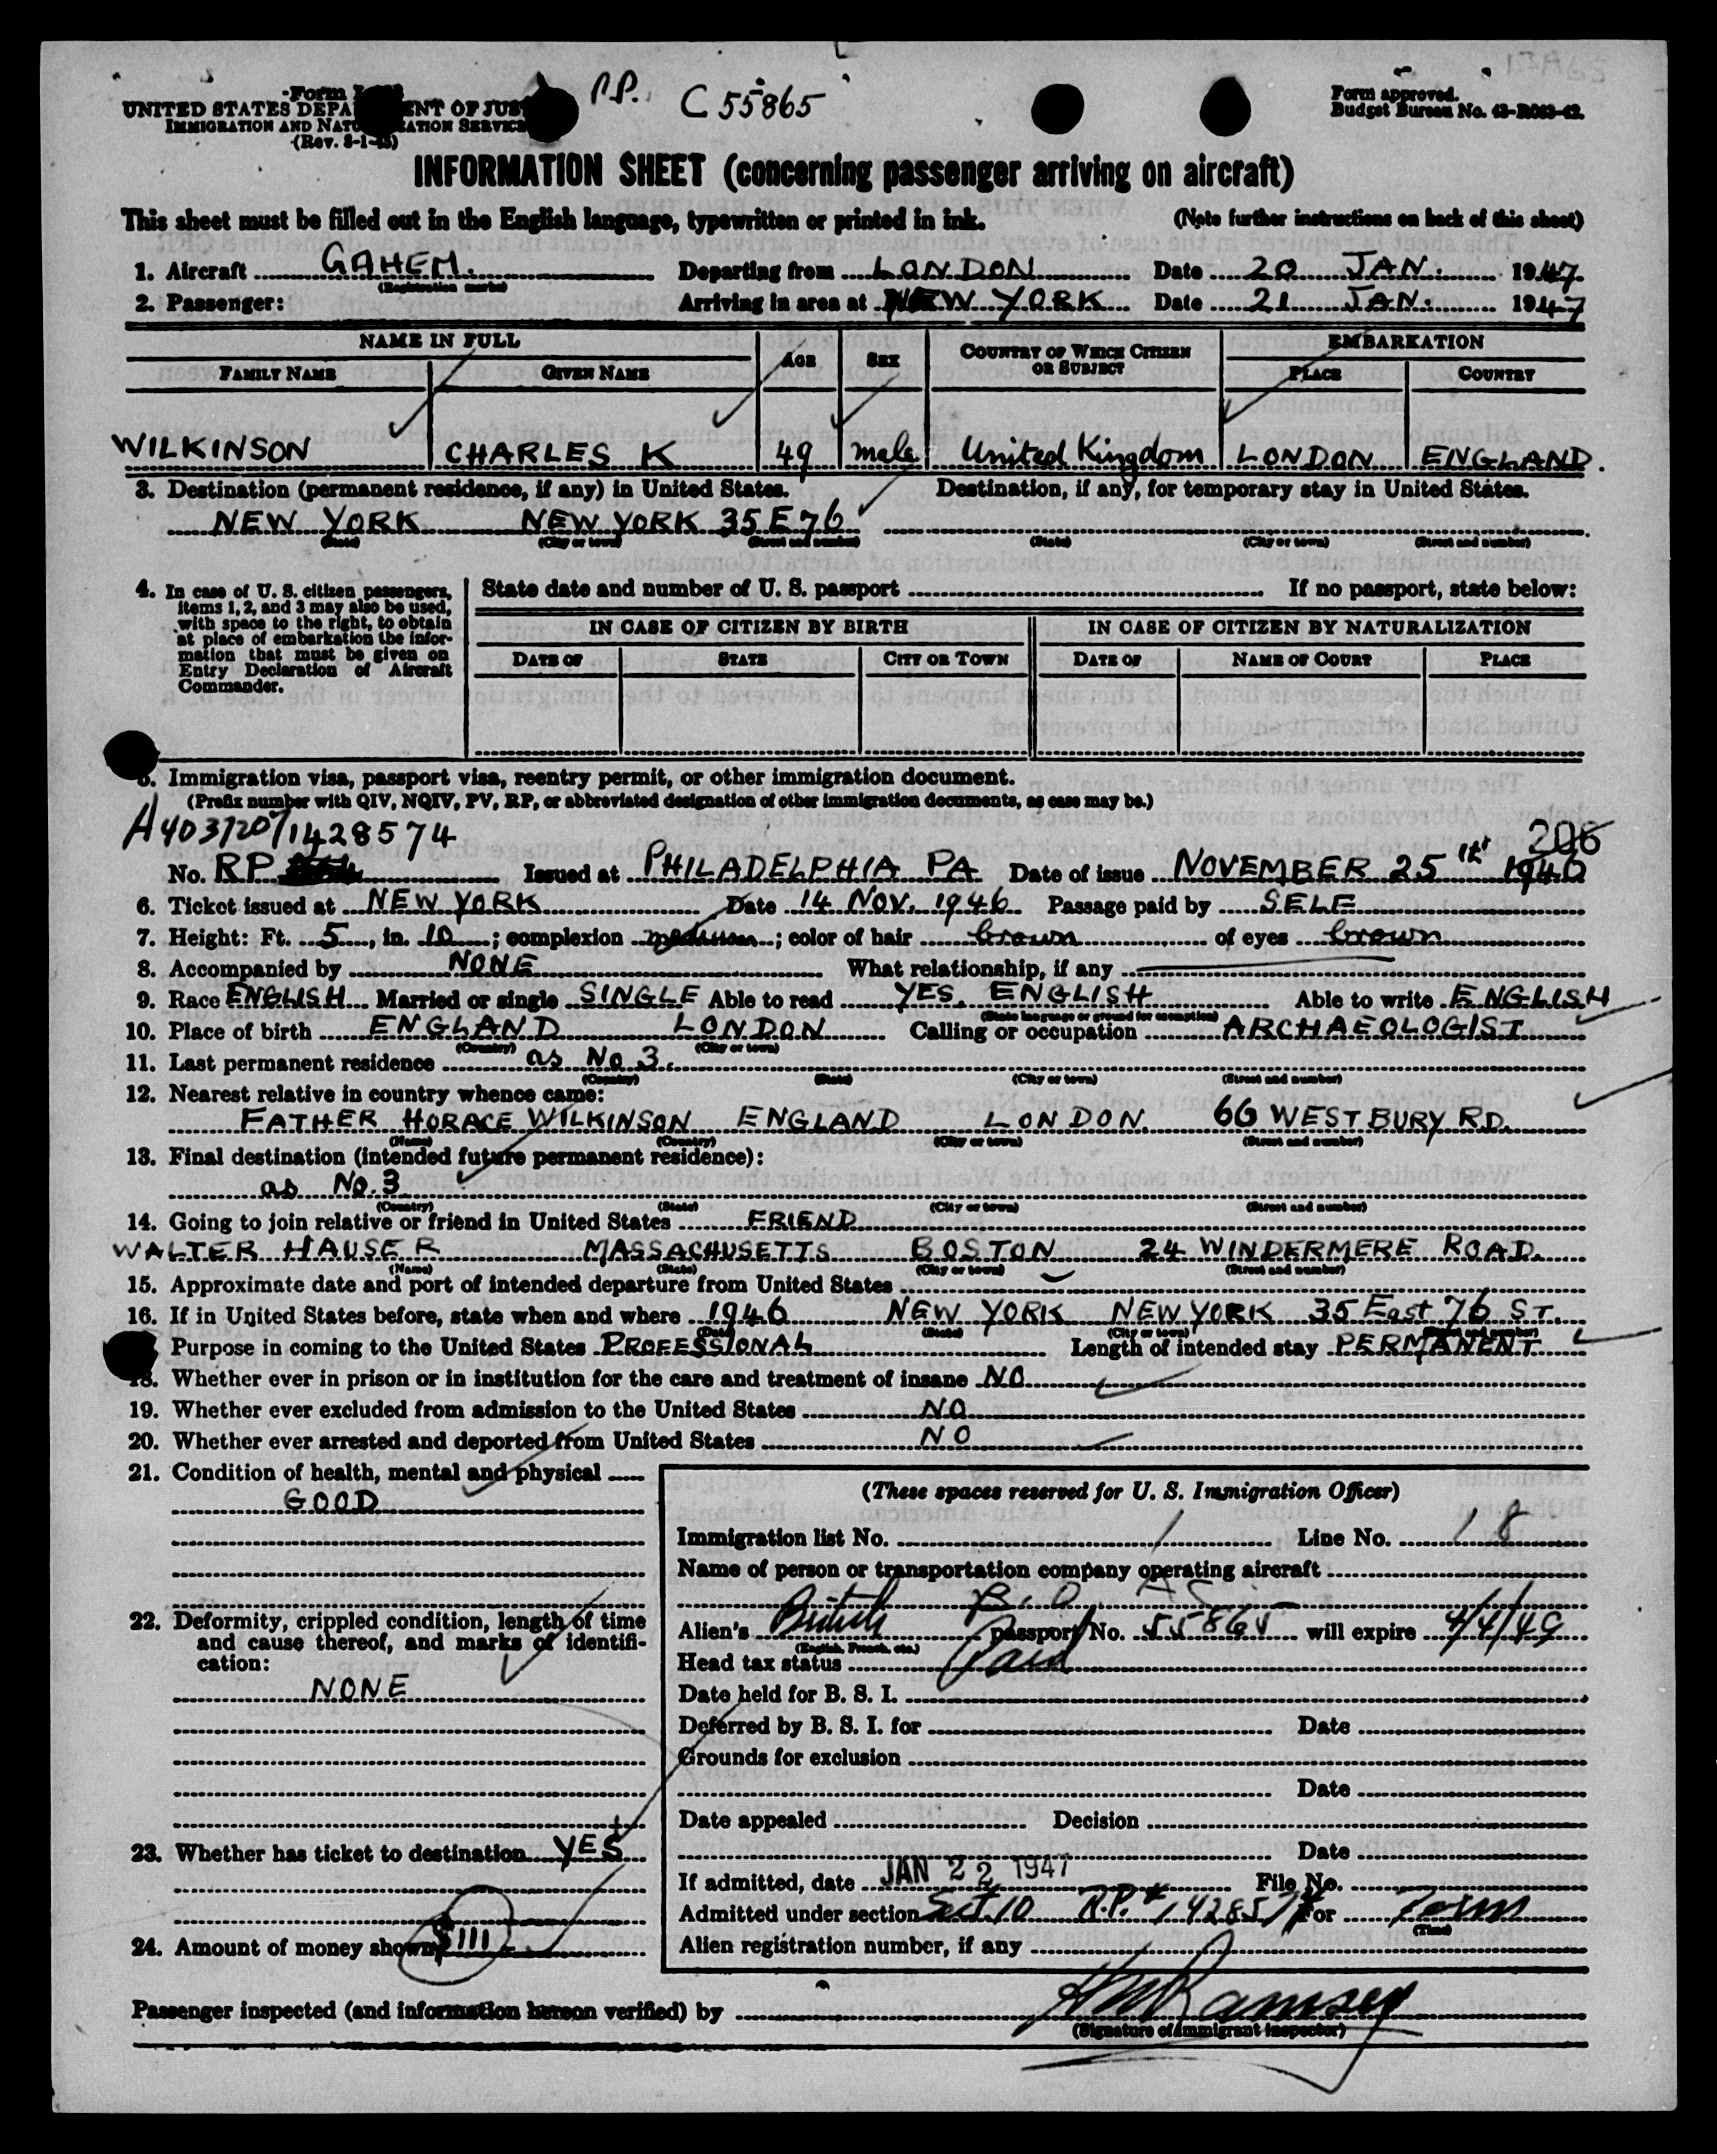 P.P. C 55865
Form
UNITED STATES DEPARTMENT OF JUSTICE
IMMIGRATION AND NATURALIZATION SERVICE
(Rev. 8-1-45)
Form approved.
Budget Bureau No. 43-R083-42.
INFORMATION SHEET (concerning passenger arriving on aircraft)
This sheet must be filled out in the English language, typewritten or printed in ink. (Note further instructions on back of this sheet)
1. Aircraft GAHEM. Departing from LONDON Date 20 JAN. 1947
(Registration marks)
2. Passenger: Arriving in area at NEW YORK Date 21 JAN. 1947
NAME IN FULL AGE SEX COUNTRY OF WHICH CITIZEN OR SUBJECT EMBARKATION
FAMILY NAME GIVEN NAME PLACE COUNTRY
WILKINSON CHARLES K 49 male United Kingdom LONDON ENGLAND.
3. Destination (permanent residence, if any) in United States. Destination, if any, for temporary stay in United States.
NEW YORK NEW YORK 35 E 76
(State) (City or town) (Street and number) (State) (City or town) (Street and number)
4. In case of U. S. citizen passengers, items 1, 2, and 3 may also be used, with space to the right, to obtain at place of embarkation the information that must be given on Entry Declaration of Aircraft Commander.
State date and number of U. S. passport If no passport, state below:
IN CASE OF CITIZEN BY BIRTH IN CASE OF CITIZEN BY NATURALIZATION
DATE OF STATE CITY OR TOWN DATE OF NAME OF COURT PLACE
5. Immigration visa, passport visa, reentry permit, or other immigration document.
(Prefix number with QIV, NQIV, PV, RP, or abbreviated designation of other immigration documents, as case may be.)
A4037207 1428574 206
No. RP Issued at PHILADELPHIA PA Date of issue NOVEMBER 25th 1946
6. Ticket issued at NEW YORK Date 14 NOV. 1946 Passage paid by SELF
7. Height: Ft. 5, in. 10; complexion medium; color of hair brown of eyes brown
8. Accompanied by NONE What relationship, if any
9. Race ENGLISH Married or single SINGLE Able to read YES. ENGLISH Able to write ENGLISH
(State language or ground for exemption)
10. Place of birth ENGLAND LONDON Calling or occupation ARCHAEOLOGIST
(Country) (City or town)
11. Last permanent residence as No 3.
(Country) (State) (City or town) (Street and number)
12. Nearest relative in country whence came:
FATHER HORACE WILKINSON ENGLAND LONDON. 66 WESTBURY RD.
(Name) (Country) (City or town) (Street and number)
13. Final destination (intended future permanent residence):
as No. 3
(Country) (State) (City or town) (Street and number)
14. Going to join relative or friend in United States FRIEND
WALTER HAUSER MASSACHUSETTS BOSTON 24 WINDERMERE ROAD.
(Name) (State) (City or town) (Street and number)
15. Approximate date and port of intended departure from United States
16. If in United States before, state when and where 1946 NEW YORK NEW YORK 35 East 76 ST.
(Date) (State) (City or town) (Street and number)
Purpose in coming to the United States PROFESSIONAL Length of intended stay PERMANENT
18. Whether ever in prison or in institution for the care and treatment of insane NO
19. Whether ever excluded from admission to the United States NO
20. Whether ever arrested and deported from United States NO
21. Condition of health, mental and physical
GOOD
22. Deformity, crippled condition, length of time and cause thereof, and marks of identification:
NONE
23. Whether has ticket to destination YES
24. Amount of money shown $111
(These spaces reserved for U. S. Immigration Officer)
Immigration list No. 1 Line No. 18
Name of person or transportation company operating aircraft
B.O.A.C.
Alien's British passport No. 55865 will expire 4/4/49
(English, French, etc.)
Head tax status Paid
Date held for B. S. I.
Deferred by B. S. I. for Date
Grounds for exclusion
Date
Date appealed Decision
Date
If admitted, date JAN 22 1947 File No.
Admitted under section Sect 10 R.P. # 1428574 For Perm
(Time)
Alien registration number, if any
Passenger inspected (and information hereon verified) by Ramsey
(Signature of immigrant inspector)